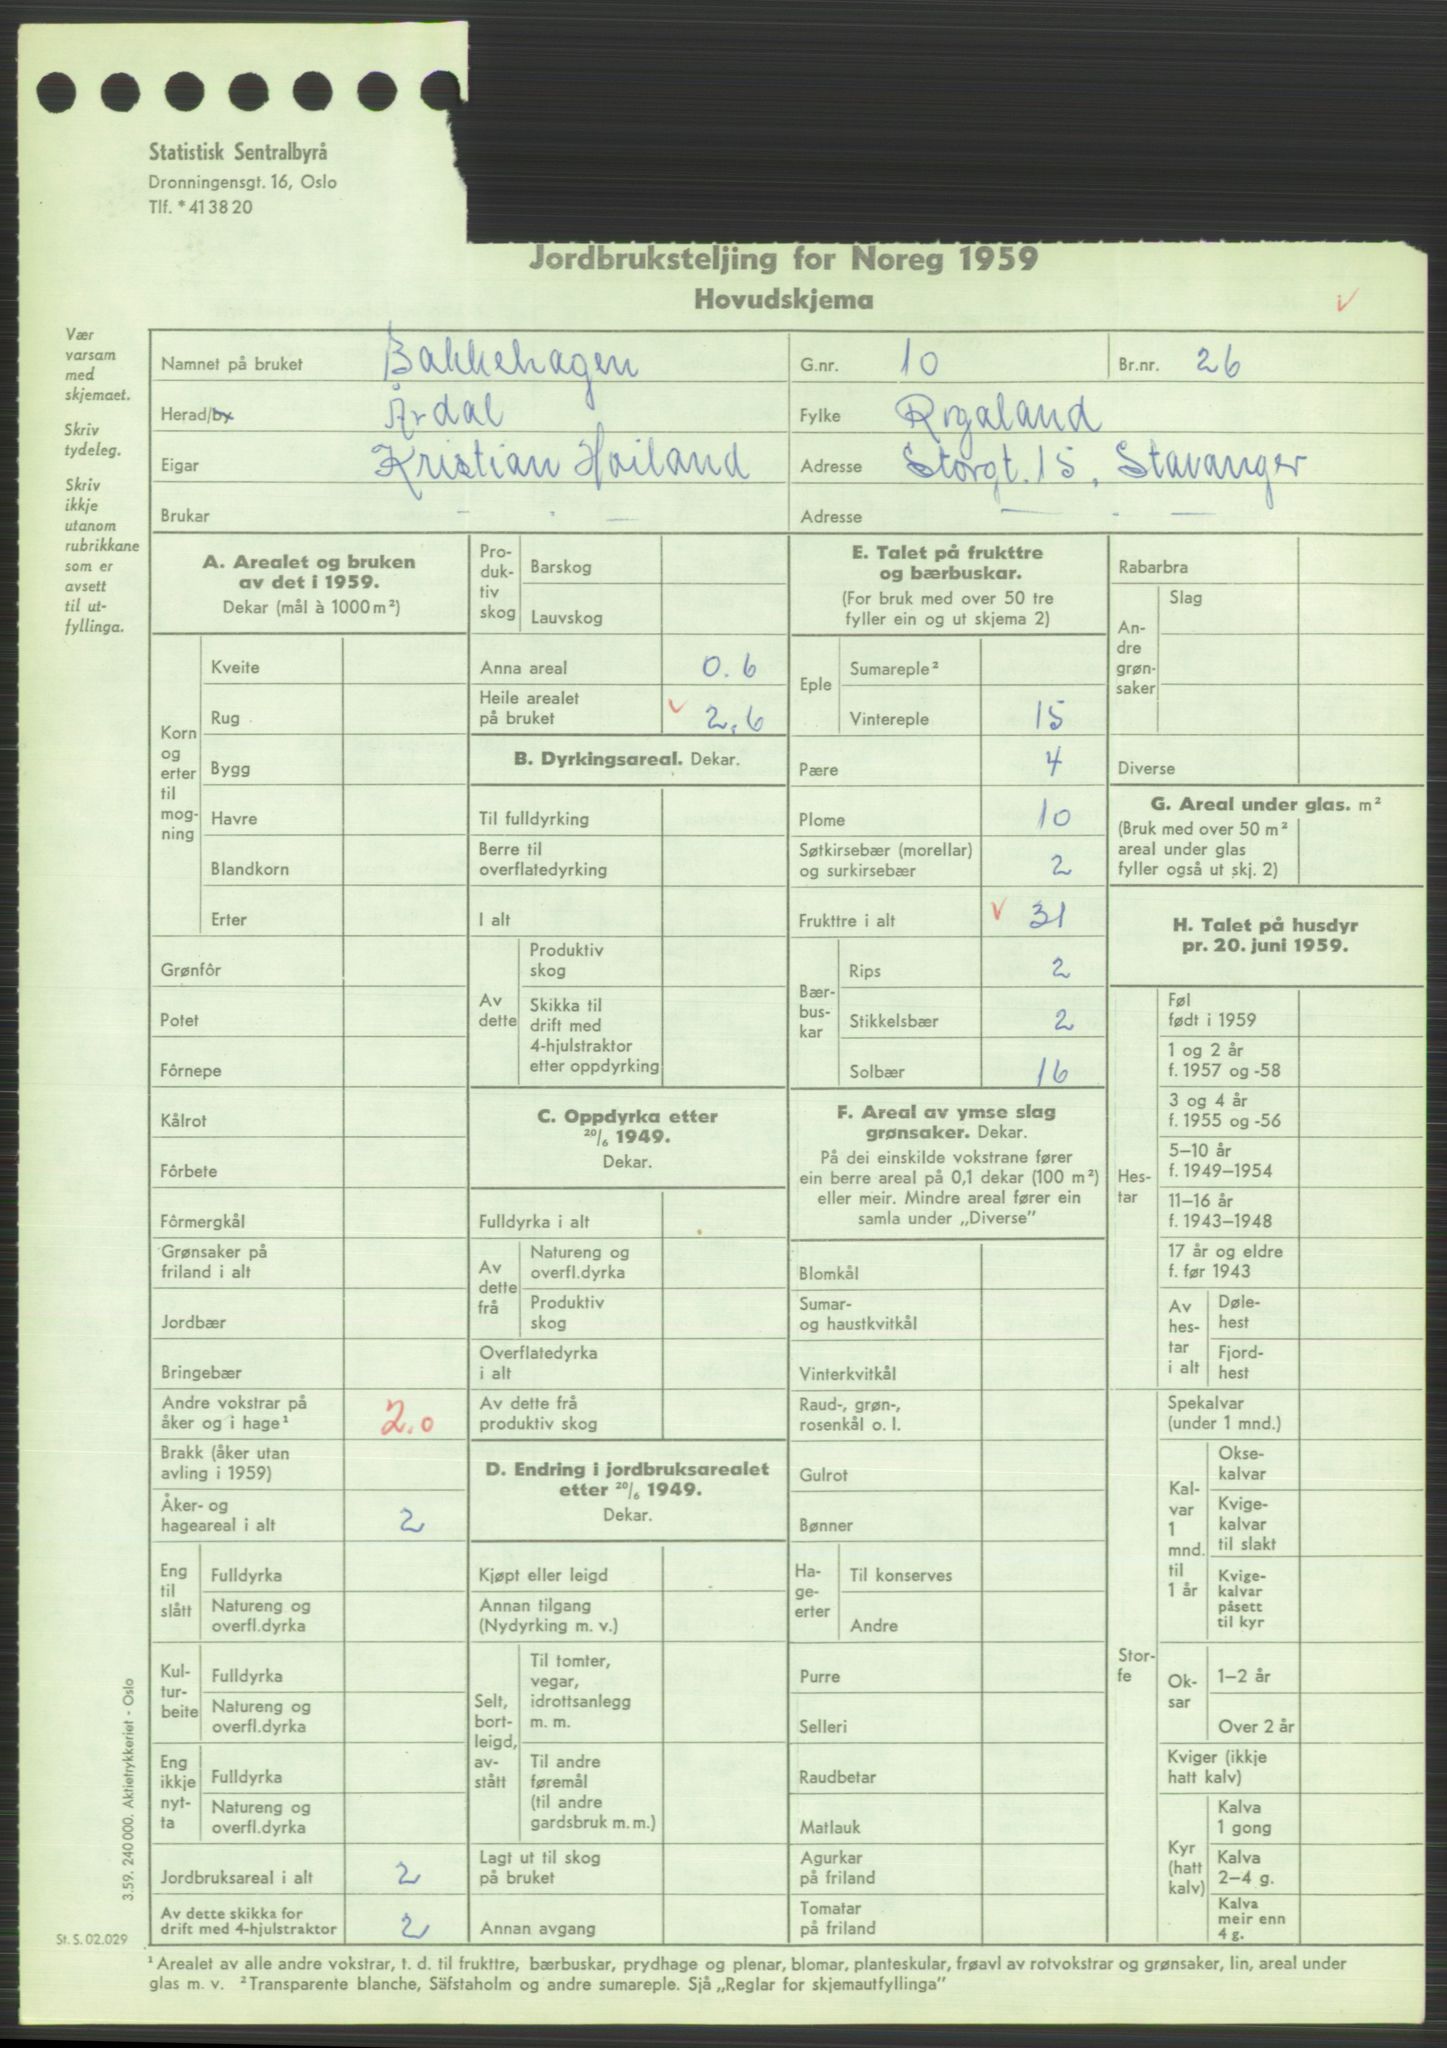 Statistisk Sentralbyrå
Dronningensgt. 16, Oslo
Tlf. *41 38 20
Jordbruksteljing for Noreg 1959
Hovudskjema
V
Vær
varsam
med
skjemaet.
Skriv
tydeleg.
Skriv
ikkje
utanom
rubrikkane
som er
avsett
til ut-
fyllinga.
Namnet på bruket Bakkehagen G.nr. 10 Br.nr. 26
Herad/by Årdal Fylke Rogaland
Eigar Kristian Hoiland Adresse Storgt. 15, Stavanger
Brukar — . — Adresse — . —
A. Arealet og bruken
av det i 1959.
Dekar (mål à 1000 m²)
Korn
og
erter
til
mog-
ning
Kveite
Rug
Bygg
Havre
Blandkorn
Erter
Grønfôr
Potet
Fôrnepe
Kålrot
Fôrbete
Fôrmergkål
Grønsaker på
friland i alt
Jordbær
Bringebær
Andre vokstrar på
åker og i hage¹ 2.0
Brakk (åker utan
avling i 1959)
Åker- og
hageareal i alt 2
Eng
til
slått
Fulldyrka
Natureng og
overfl.dyrka
Kul-
tur-
beite
Fulldyrka
Natureng og
overfl.dyrka
Eng
ikkje
nyt-
ta
Fulldyrka
Natureng og
overfl.dyrka
Jordbruksareal i alt 2
Av dette skikka for
drift med 4-hjulstraktor 2
Pro-
duk-
tiv
skog
Barskog
Lauvskog
Anna areal 0.6
Heile arealet
på bruket V 2,6
B. Dyrkingsareal. Dekar.
Til fulldyrking
Berre til
overflatedyrking
I alt
Av
dette
Produktiv
skog
Skikka til
drift med
4-hjulstraktor
etter oppdyrking
C. Oppdyrka etter
20/6 1949.
Dekar.
Fulldyrka i alt
Av
dette
frå
Natureng og
overfl.dyrka
Produktiv
skog
Overflatedyrka
i alt
Av dette frå
produktiv skog
D. Endring i jordbruksarealet
etter 20/6 1949.
Dekar.
Kjøpt eller leigd
Annan tilgang
(Nydyrking m. v.)
Selt,
bort-
leigd,
av-
stått
Til tomter,
vegar,
idrottsanlegg
m. m.
Til andre
føremål
(til andre
gardsbruk m. m.)
Lagt ut til skog
på bruket
Annan avgang
E. Talet på frukttre
og bærbuskar.
(For bruk med over 50 tre
fyller ein og ut skjema 2)
Eple
Sumareple²
Vintereple 15
Pære 4
Plome 10
Søtkirsebær (morellar)
og surkirsebær 2
Frukttre i alt V 31
Bær-
bus-
kar
Rips 2
Stikkelsbær 2
Solbær 16
F. Areal av ymse slag
grønsaker. Dekar.
På dei einskilde vokstrane fører
ein berre areal på 0,1 dekar (100 m²)
eller meir. Mindre areal fører ein
samla under „Diverse”
Blomkål
Sumar-
og haustkvitkål
Vinterkvitkål
Raud-, grøn-,
rosenkål o. l.
Gulrot
Bønner
Ha-
ge-
erter
Til konserves
Andre
Purre
Selleri
Raudbetar
Matlauk
Agurkar
på friland
Tomatar
på friland
Rabarbra
An-
dre
grøn-
saker
Slag
Diverse
G. Areal under glas. m²
(Bruk med over 50 m²
areal under glas
fyller også ut skj. 2)
H. Talet på husdyr
pr. 20. juni 1959.
Hes-
tar
Føl
født i 1959
1 og 2 år
f. 1957 og -58
3 og 4 år
f. 1955 og -56
5–10 år
f. 1949–1954
11–16 år
f. 1943–1948
17 år og eldre
f. før 1943
Av
hes-
tar
i alt
Døle-
hest
Fjord-
hest
Stor-
fe
Spekalvar
(under 1 mnd.)
Kal-
var
1
mnd.
til
1 år
Okse-
kalvar
Kvige-
kalvar
til slakt
Kvige-
kalvar
påsett
til kyr
Ok-
sar
1–2 år
Over 2 år
Kviger (ikkje
hatt kalv)
Kyr
(hatt
kalv)
Kalva
1 gong
Kalva
2–4 g.
Kalva
meir enn
4 g.
3.59. 240 000. Aktietrykkeriet - Oslo
St. S. 02.029
¹ Arealet av alle andre vokstrar, t. d. til frukttre, bærbuskar, prydhage og plenar, blomar, planteskular, frøavl av rotvokstrar og grønsaker, lin, areal under
glas m. v. ² Transparente blanche, Säfstaholm og andre sumareple. Sjå „Reglar for skjemautfyllinga”